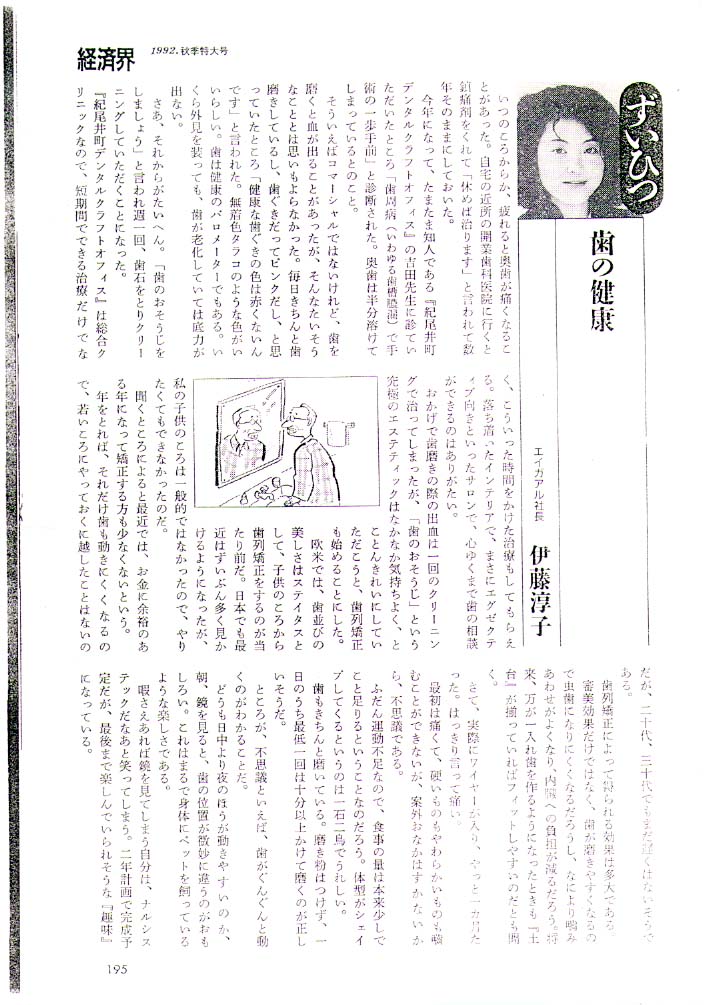 経済界
1992.秋季特大号
ずいひつ
歯の健康
エイガアル社長
伊藤淳子
いつのころからか、疲れると奥歯が痛くなるこ
とがあった。自宅の近所の開業歯科医院に行くと
鎮痛剤をくれて「休めば治ります」と言われて数
年そのままにしておいた。
今年になって、たまたま知人である『紀尾井町
デンタルクラフトオフィス』の吉田先生に診てい
ただいたところ「歯周病（いわゆる歯槽膿漏）で手
術の一歩手前」と診断された。奥歯は半分溶けて
しまっているとのこと。
そういえばコマーシャルではないけれど、歯を
磨くと血が出ることがあったが、そんなたいそう
なこととは思いもよらなかった。毎日きちんと歯
磨きしているし、歯ぐきだってピンクだし、と思
っていたところ「健康な歯ぐきの色は赤くないん
です」と言われた。無着色タラコのような色がい
いらしい。歯は健康のバロメーターでもある。い
くら外見を装っても、歯が老化していては底力が
出ない。
さあ、それからがたいへん。「歯のおそうじを
しましょう」と言われ週一回、歯石をとりクリー
ニングしていただくことになった。
『紀尾井町デンタルクラフトオフィス』は総合ク
リニックなので、短期間でできる治療だけでな
く、こういった時間をかけた治療もしてもらえ
る。落ち着いたインテリアで、まさにエグゼクテ
ィブ向きといったサロンで、心ゆくまで歯の相談
ができるのはありがたい。
おかげで歯磨きの際の出血は一回のクリーニン
グで治ってしまったが、「歯のおそうじ」という
究極のエステティックはなかなか気持ちよく、と
ことんきれいにしてい
ただこうと、歯列矯正
も始めることにした。
欧米では、歯並びの
美しさはステイタスと
して、子供のころから
歯列矯正をするのが当
たり前だ。日本でも最
近はずいぶん多く見か
けるようになったが、
私の子供のころは一般的ではなかったので、やり
たくてもできなかったのだ。
聞くところによると最近では、お金に余裕のあ
る年になって矯正する方も少なくないという。
年をとれば、それだけ歯も動きにくくなるの
で、若いころにやっておくに越したことはないの
だが、二十代、三十代でもまだ遅くはないそうで
ある。
歯列矯正によって得られる効果は多大である
審美効果だけではなく、歯が磨きやすくなるの
で虫歯になりにくくなるだろうし、なにより噛み
あわせがよくなり、内臓への負担が減るだろう。将
来、万が一入れ歯を作るようになったときも『土
台』が揃っていればフィットしやすいのだとも聞
く。
さて、実際にワイヤーが入り、やっと一カ月た
った。はっきり言って痛い。
最初は痛くて、硬いものもやわらかいものも噛
むことができないが、案外おなかはすかないか
ら、不思議である。
ふだん運動不足なので、食事の量は本来少しで
こと足りるということなのだろう。体型がシェイ
プしてくるというのは一石二鳥でうれしい。
歯もきちんと磨いている。磨き粉はつけず、一
日のうち最低一回は十分以上かけて磨くのが正し
いそうだ。
ところが、不思議といえば、歯がぐんぐんと動
くのがわかることだ。
どうも日中より夜のほうが動きやすいのか、
朝、鏡を見ると、歯の位置が微妙に違うのがおも
しろい。これはまるで身体にペットを飼っている
ような楽しさである。
暇さえあれば鏡を見てしまう自分は、ナルシス
テックだなあと笑ってしまう。二年計画で完成予
定だが、最後まで楽しんでいられそうな『趣味』
になっている。
195